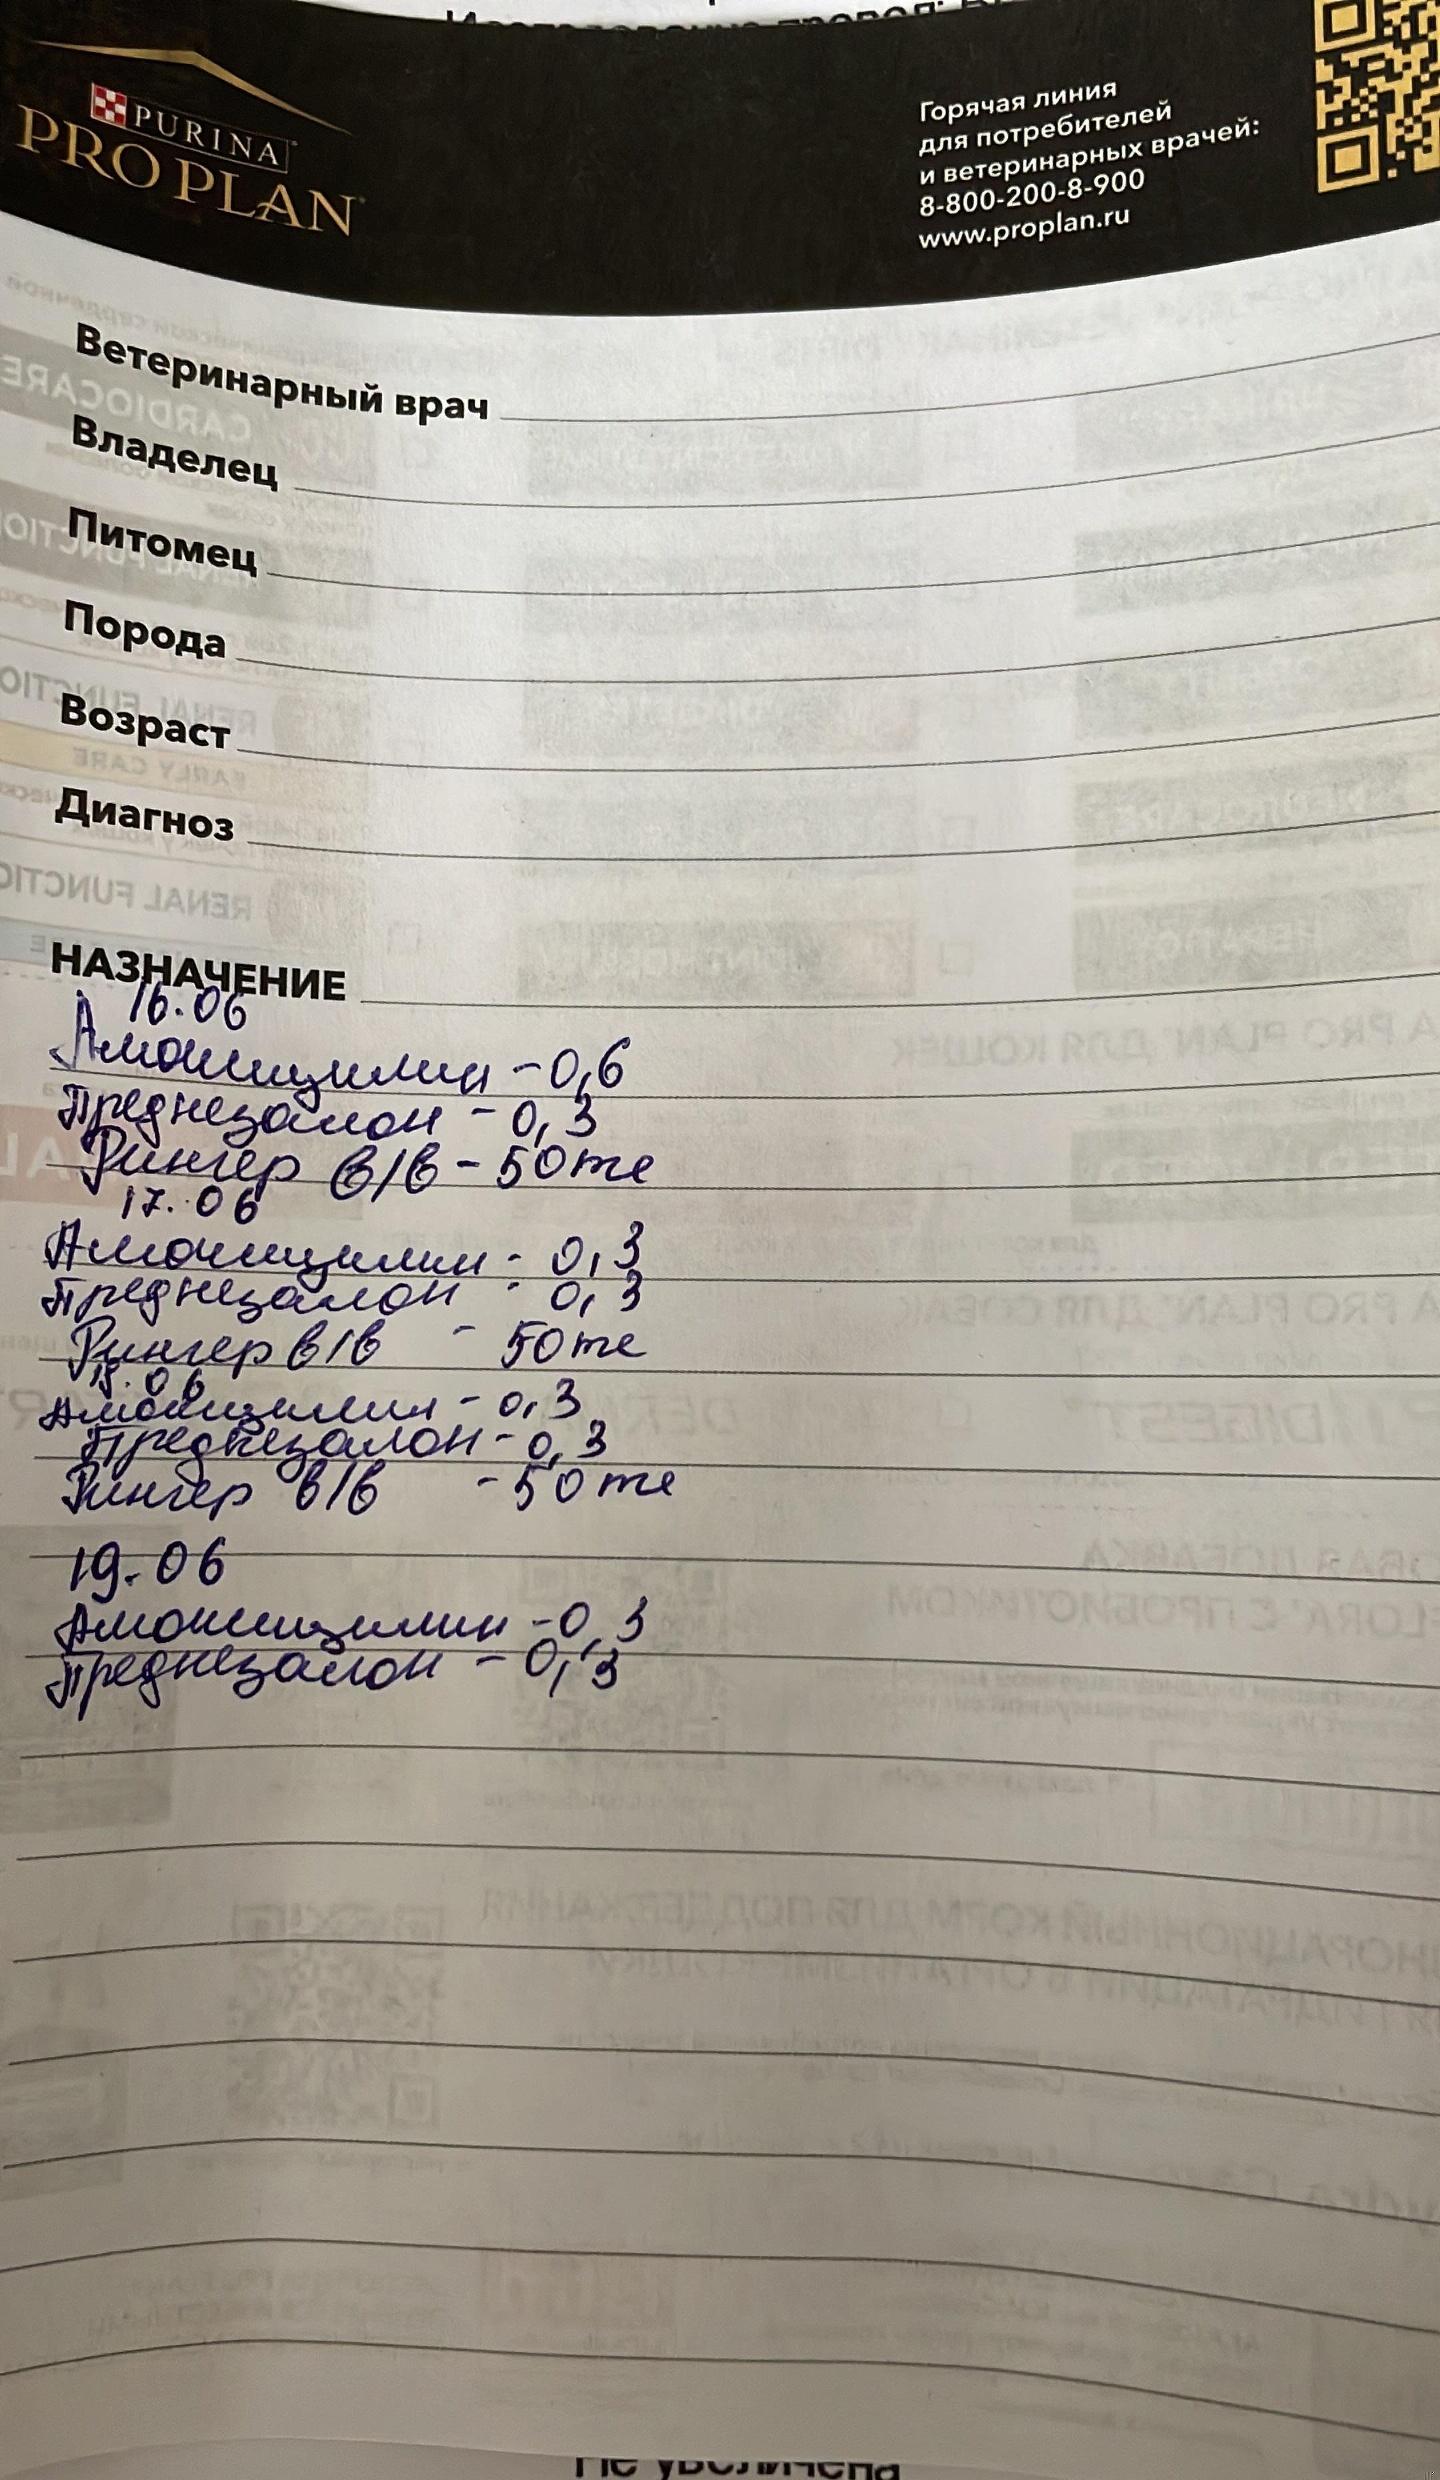 PURINA
PRO PLAN
Горячая линия
для потребителей
и ветеринарных врачей:
8-800-200-8-900
www.proplan.ru
Ветеринарный врач
Владелец
Питомец
Порода
Возраст
Диагноз
НАЗНАЧЕНИЕ
16.06
Амоксицилин - 0,6
Преднезалон - 0,3
Рингер в/в - 50 мл
17.06
Амоксицилин - 0,3
Преднезалон - 0,3
Рингер в/в - 50 мл
18.06
Амоксицилин - 0,3
Преднезалон - 0,3
Рингер в/в - 50 мл
19.06
Амоксицилин - 0,3
Преднезалон - 0,3
Не увеличена